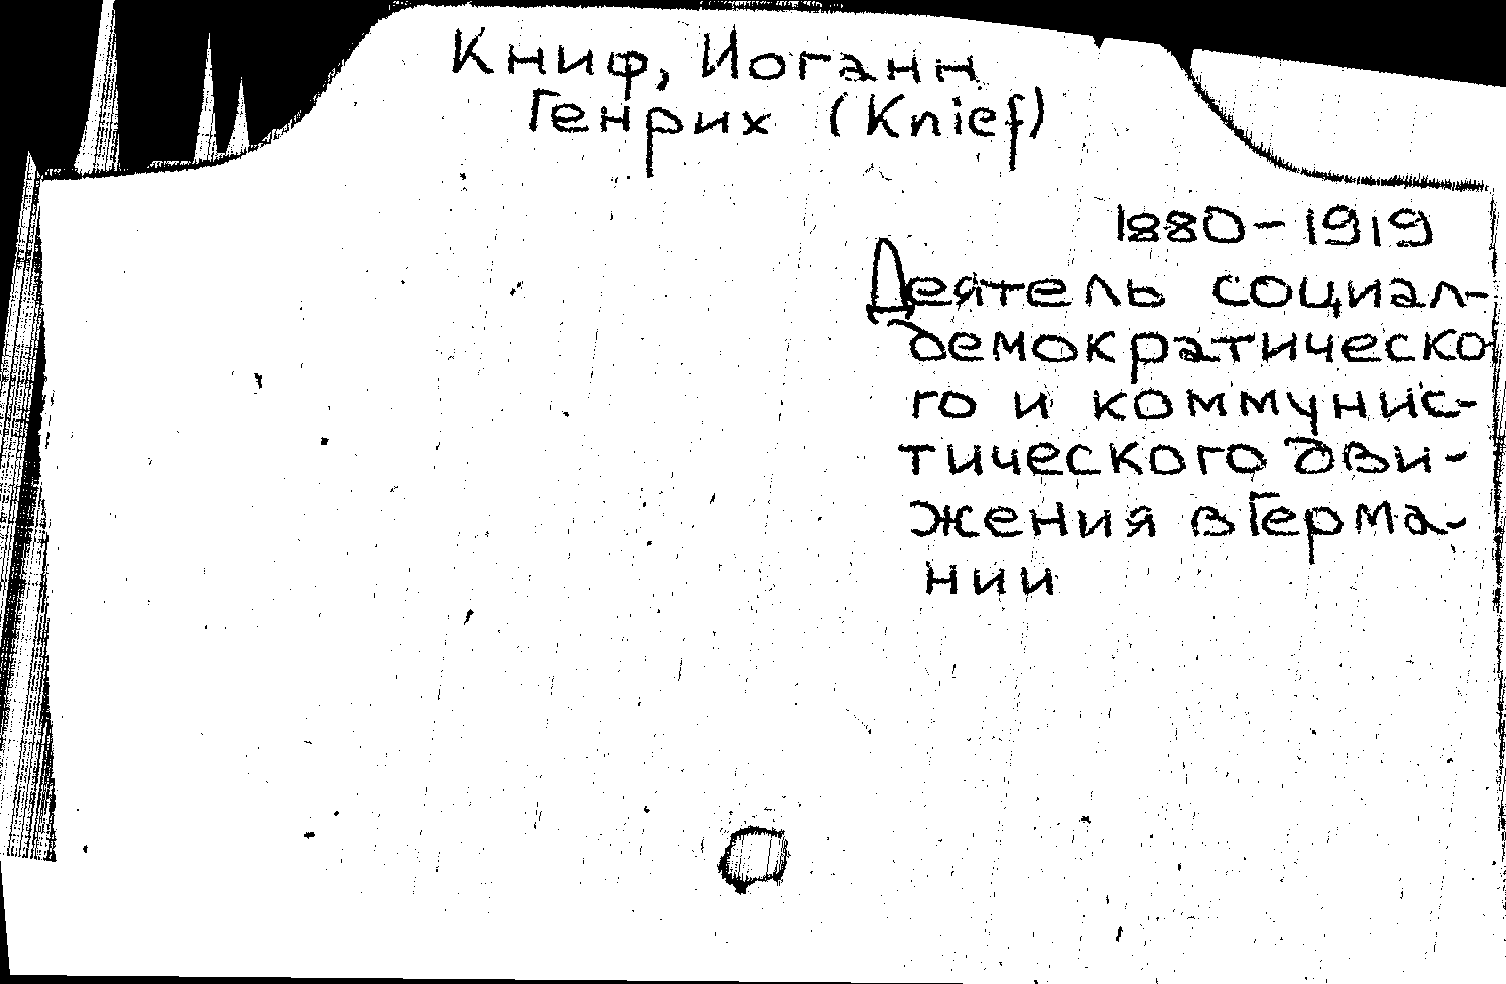 Книф, Иоганн
Генрих (Knief)
1880-1919
Деятель социал-
демократическо-
го и коммунис-
тического дви-
жения в Герма-
нии